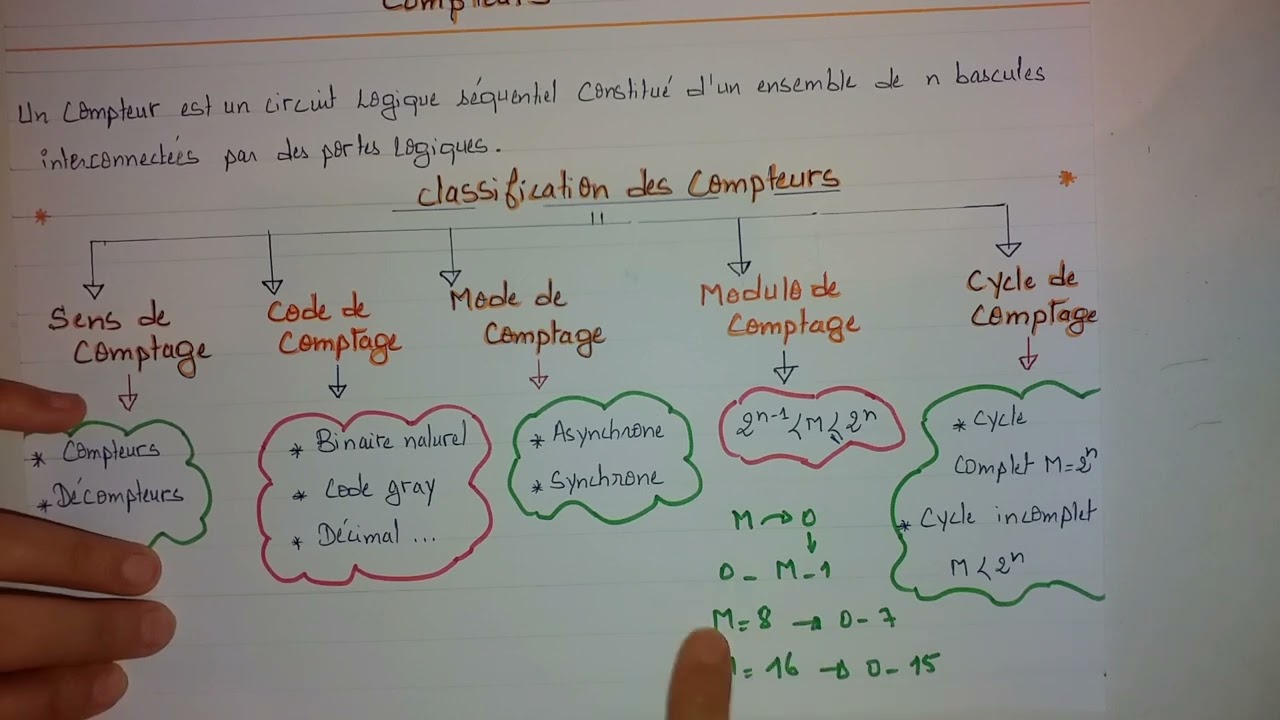 Compteurs
Un Compteur est un circuit Logique séquentiel constitué d'un ensemble de n bascules
interconnectées par des portes Logiques.
* Classification des Compteurs *
Sens de
Comptage
* Compteurs
* Décompteurs
Code de
Comptage
* Binaire naturel
* Code gray
* Décimal ...
Mode de
Comptage
* Asynchrone
* Synchrone
Modulo de
Comptage
2^{n-1} < M ≤ 2^n
M → 0
↓
0 - M-1
M = 8 → 0-7
= 16 → 0-15
Cycle de
Comptage
* Cycle
Complet M=2^n
* Cycle incomplet
M < 2^n